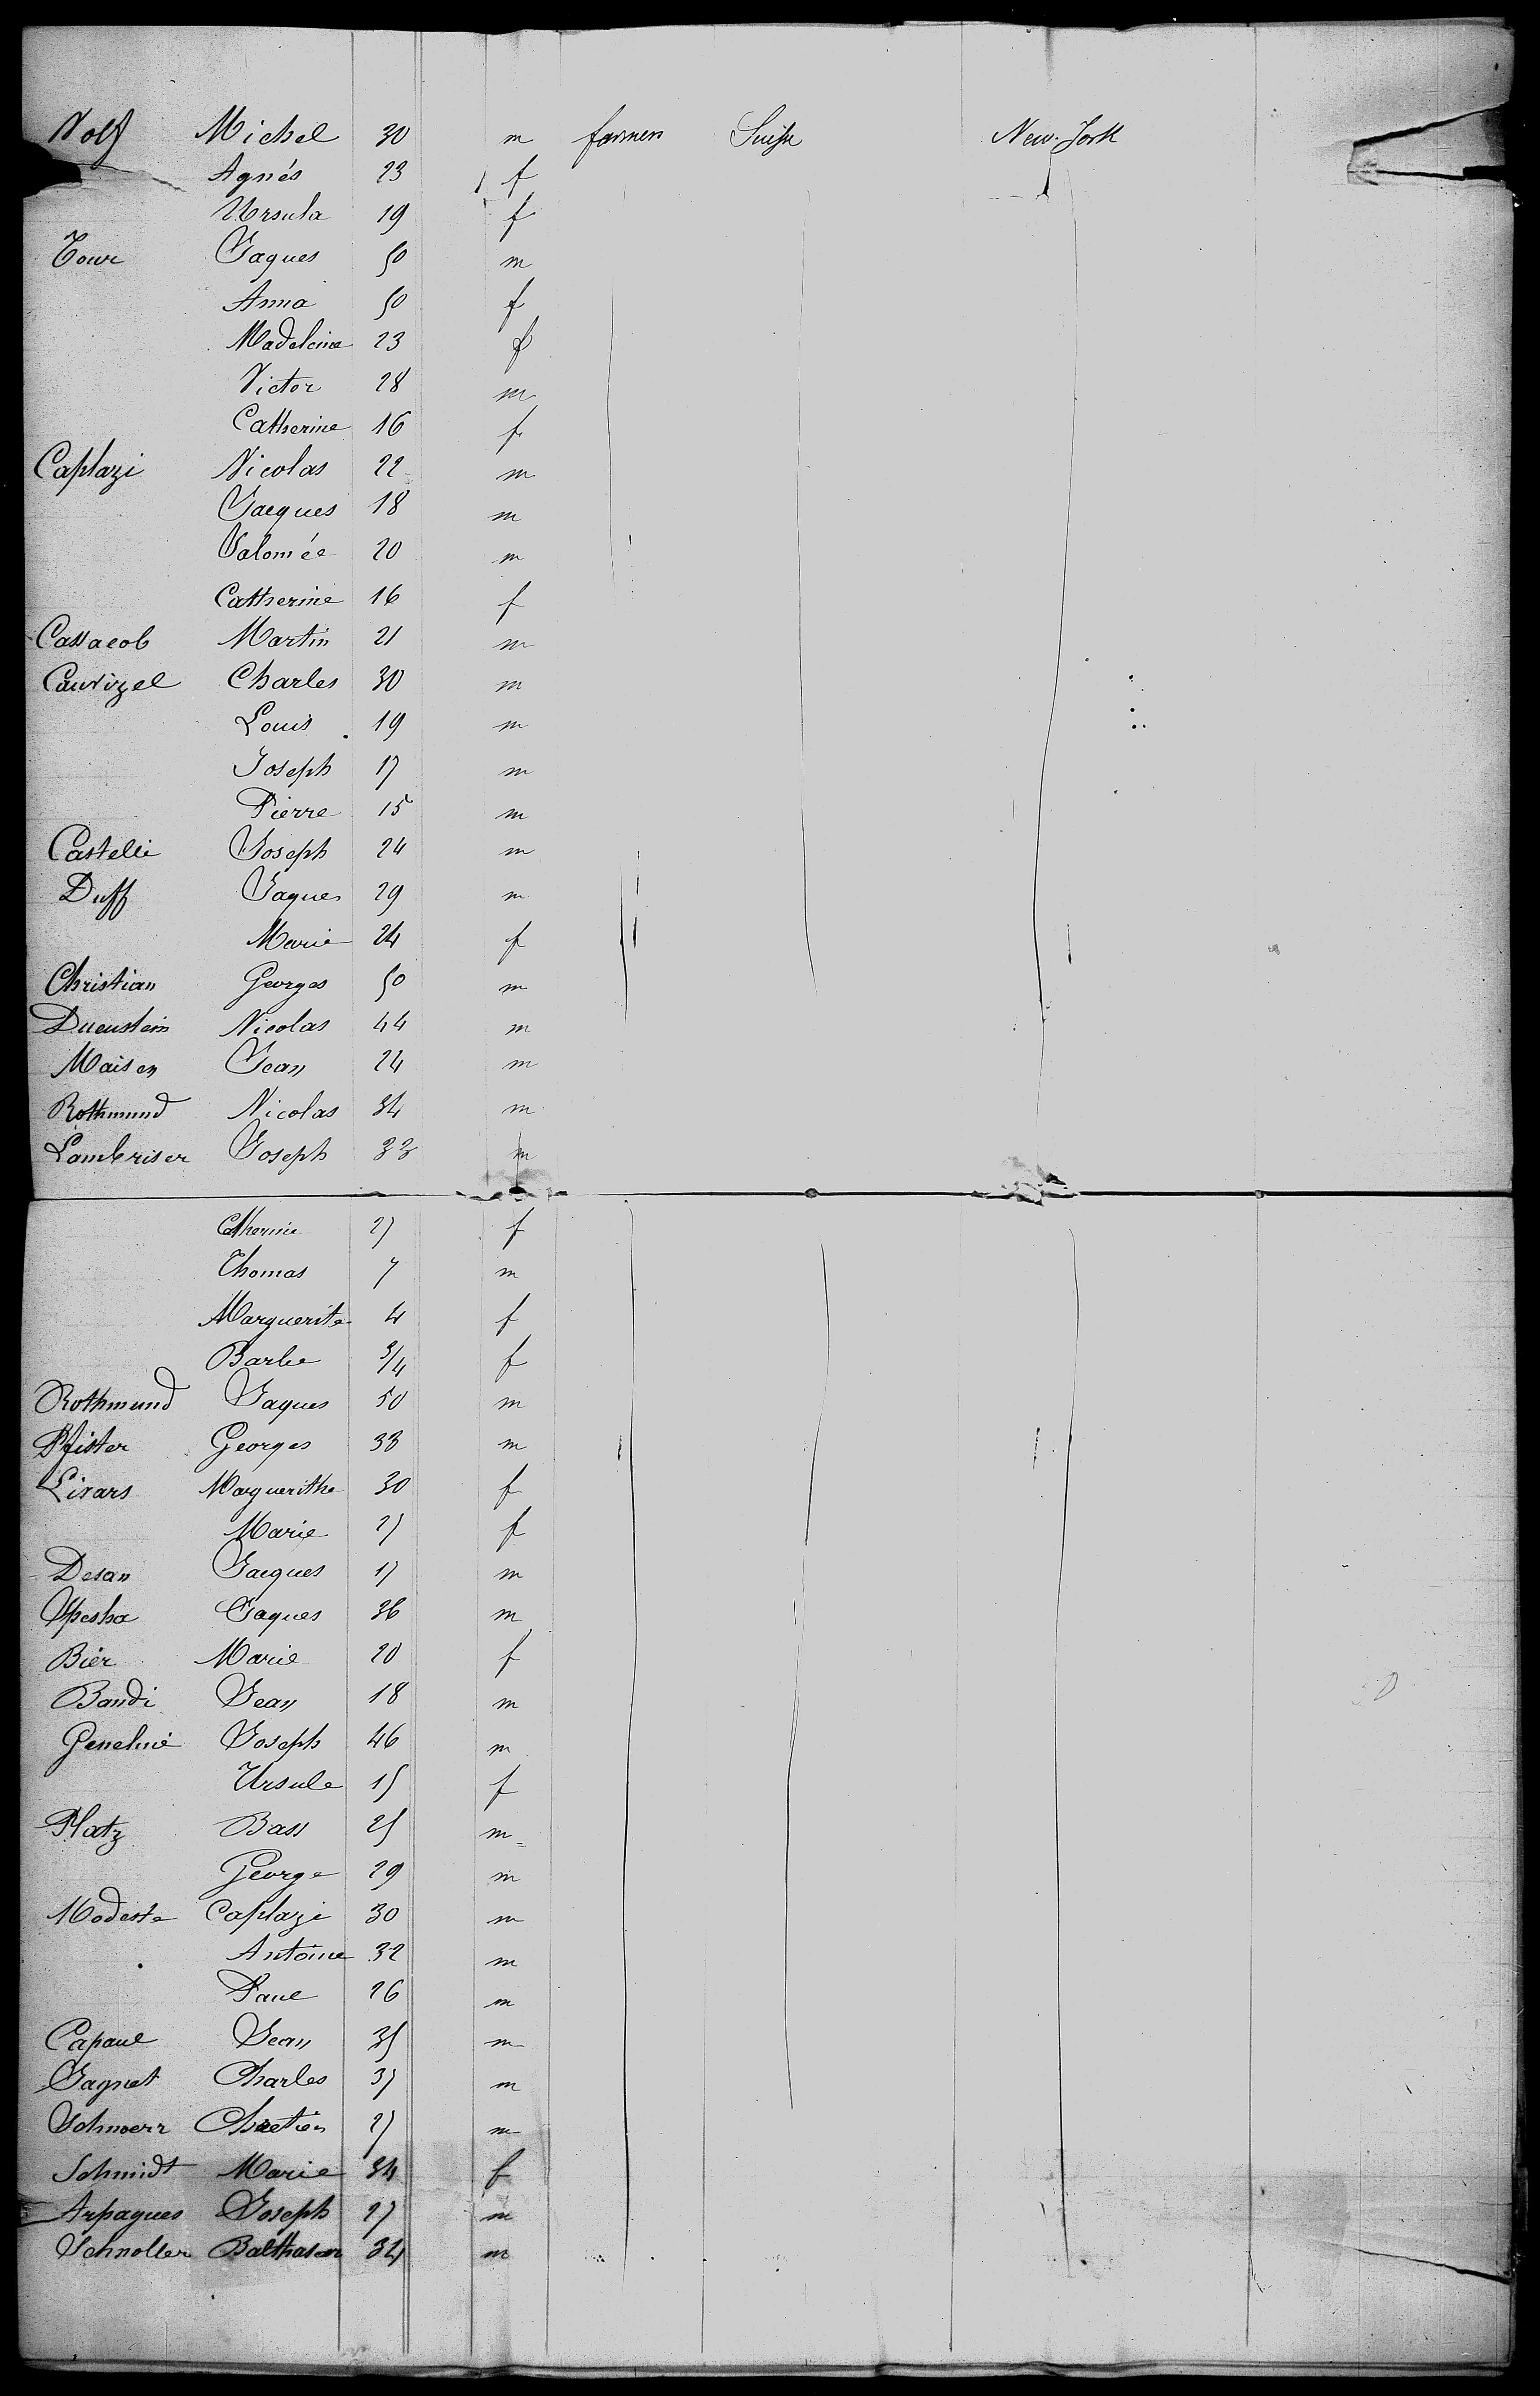 Wolf Michel 30 m farmers Suisse New-York
Agnés 23 f
Ursula 19 f
Tour Jaques 50 m
Anna 50 f
Madeleine 23 f
Victor 28 m
Catherine 16 f
Caplazi Nicolas 22 m
Jacques 18 m
Salomée 20 m
Catherine 16 f
Cassacob Martin 21 m
Cauvizel Charles 30 m
Louis 19 m
Joseph 17 m
Pierre 15 m
Castelli Joseph 24 m
Duff Jaques 29 m
Marie 24 f
Christian Georges 50 m
Duenstein Nicolas 44 m
Maisen Jean 24 m
Rothmund Nicolas 34 m
Lambriser Joseph 33 m
Catherine 27 f
Thomas 7 m
Marguerite 4 f
Barbe 3/4 f
Rothmund Jaques 50 m
Pfister Georges 33 m
Livars Marguerithe 30 f
Marie 25 f
Desan Jacques 17 m
Spesha Jaques 36 m
Bier Marie 20 f
Bandi Jean 18 m
Genelini Joseph 46 m
Ursule 15 f
Platz Bass 25 m
George 29 m
Modeste Caplazi 30 m
Antoine 32 m
Paul 26 m
Capaul Jean 35 m
Gagnet Charles 37 m
Schmoerr Chretien 27 m
Schmidt Marie 34 f
Arpagues Joseph 27 m
Schnoller Balthasar 34 m